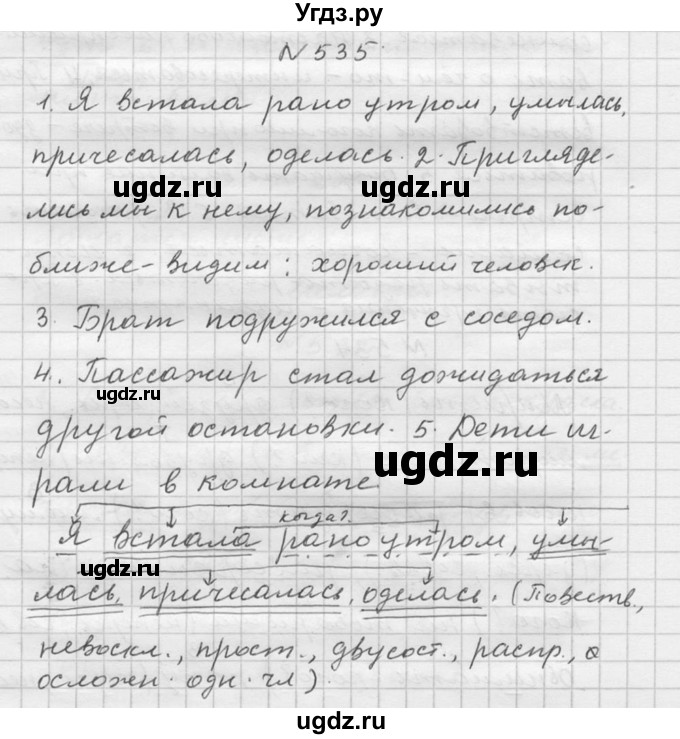 Угдз.ру
N 535.
1. Я встала рано утром, умылась,
причесалась, оделась. 2. Пригляде-
ugdz.ru ugdz.ru
лись мы к нему, познакомились по-
ближе - видим: хороший человек.
3. Брат подружился с соседом.
4. Пассажир стал дожидаться
ugdz.ru
другой остановки. 5. Дети иг-
ugdz.ru
рали в комнате
когда?
Я встала рано утром, умы-
ugdz.ru
лась, причесалась, оделась. (Повеств.,
невоскл., прост., двусост., распр.,
осложн. одн. чл).
ugdz.ru